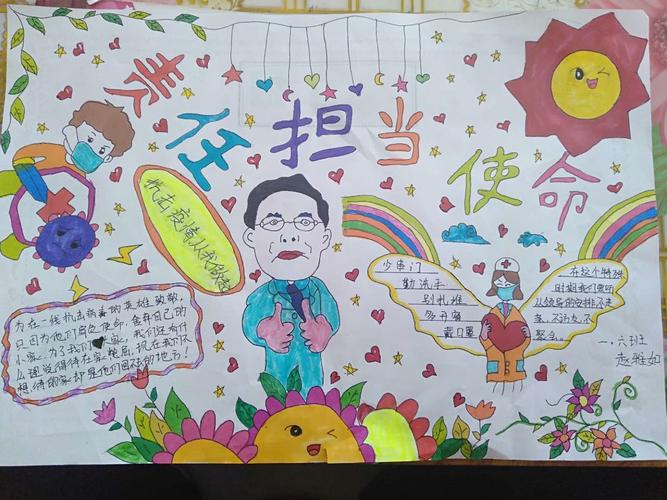 责任担当使命
抗击疫情从我做起
少串门
勤洗手
别扎堆
多开窗
戴口罩
在这个特殊
时期我们要听
从领导的安排不走
亲、不访友、不
聚会。
为在一线抗击病毒的英雄致敬,
只因为他们肩负使命,舍弃自己的
小家,为了我们大家,我们还有什
么理说得待在家,现在我们不
想待的家却是他们回不去的地方!
一.六班
赵雅如